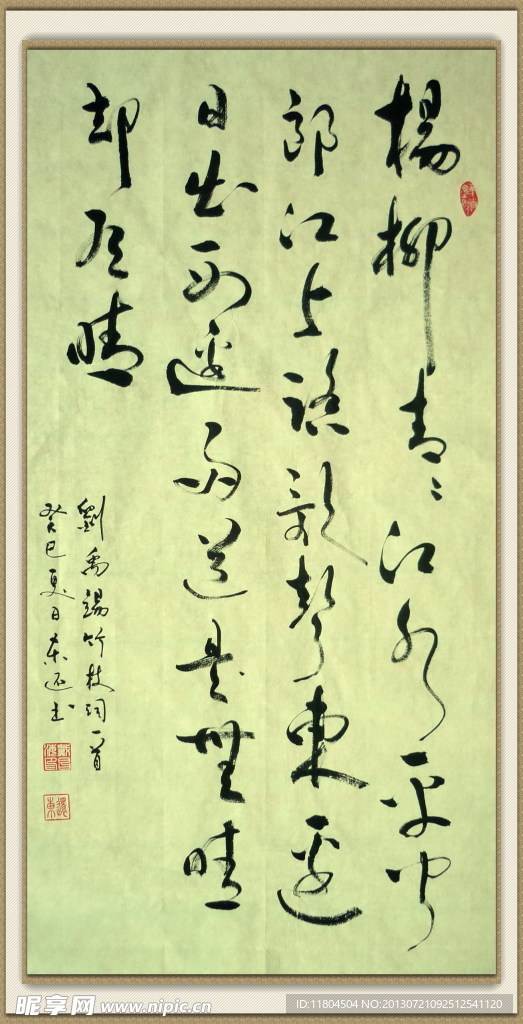 楊柳青〻江水平聞
郎江上踏歌聲東邊
日出西邊雨道是無晴
却有晴
劉禹錫竹枝詞一首
癸巳夏日东书
昵享网 www.nipic.cn
ID:11804504 NO:20130721092512541120